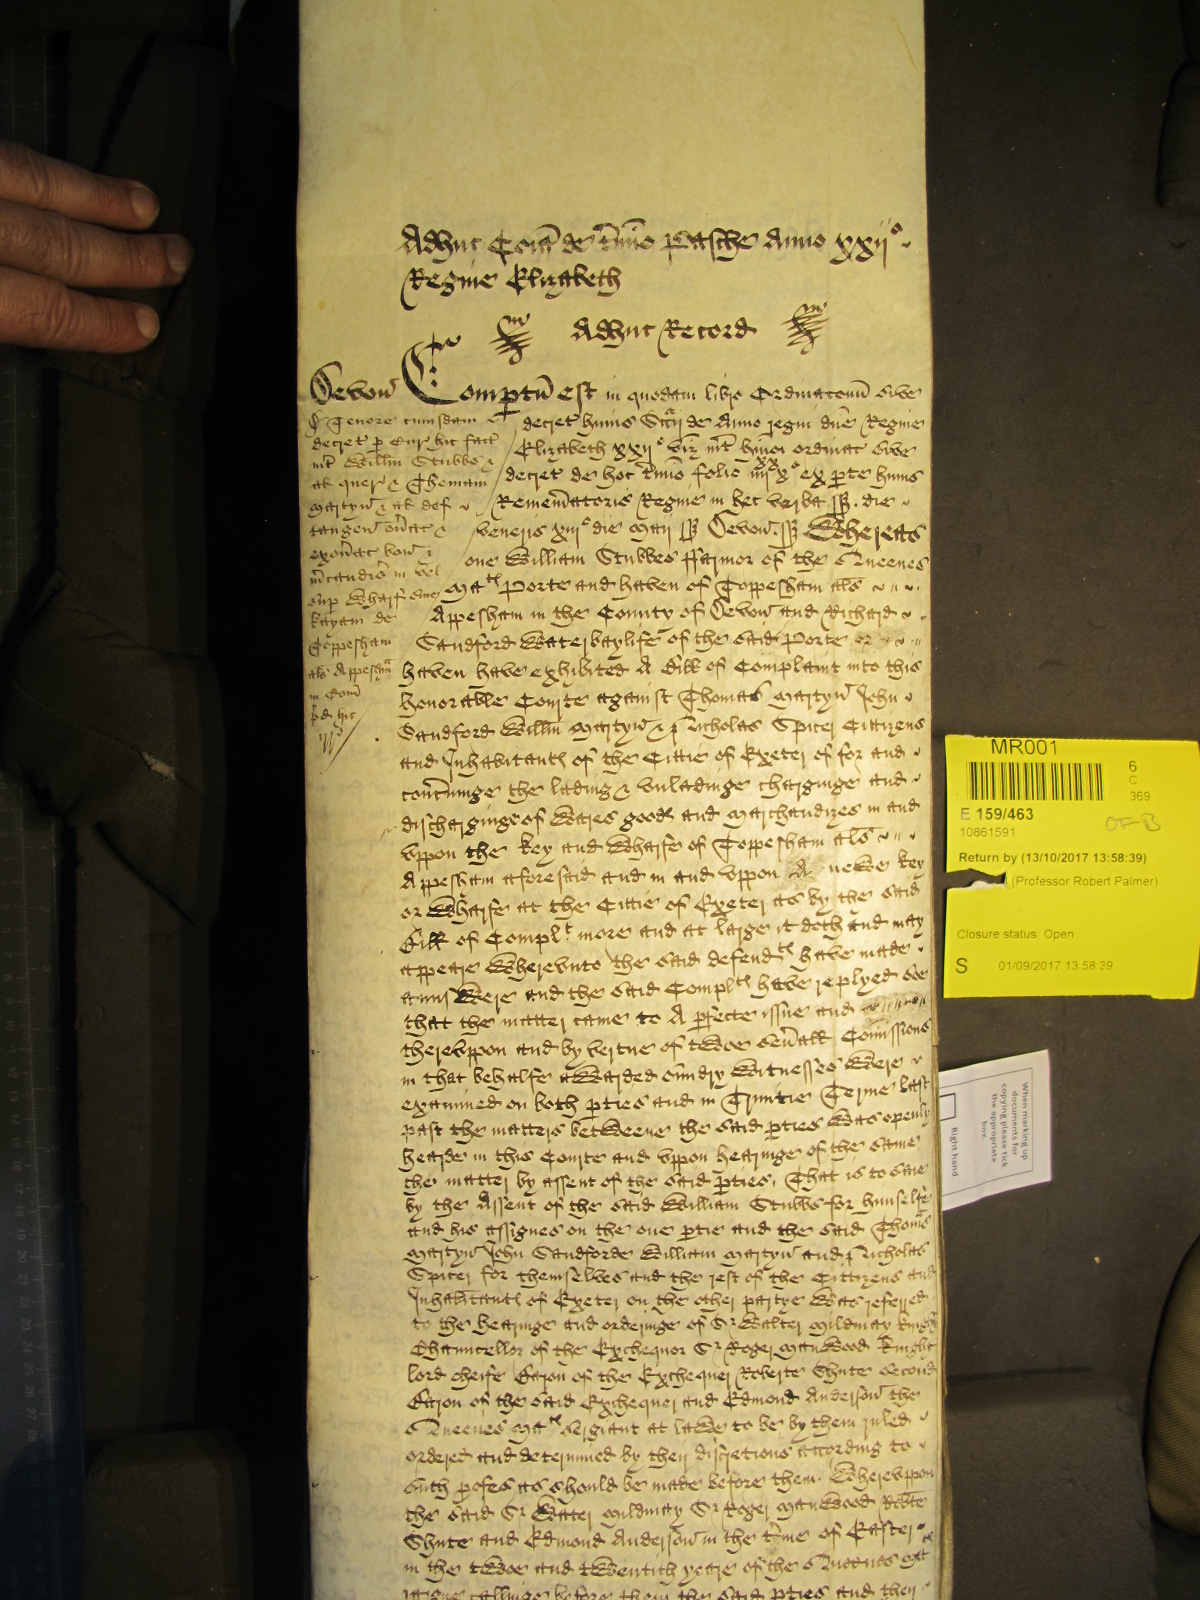 Adhuc Coĩa de t̃mio Pasche Anno xxijº
Regine Elizabeth
Adhuc Record
Devoñ
ꝑ Tenore cuiusdam
decret ꝑ Cur̃ hic fact
int̃ Willm̃ Stubbes &
al quer̃ & Thomam
Martyn & al def
tangen̄ oñat &
exoñat boñ &
m̃candis̃ in vel
sup Wharf sive
kayam de
Toppesham
als Appeshm̃
in Com̃
p̄d hic
Comptũ est in quodam libro Ordinacionũ sive
decret huius Scac̃ij de Anno regni dñe Regine
Elizabeth xxijº viz int̃ hm̃oi ordinac̃ sive
decret de hoc t̃mio folio ex ꝑte huius
Remem̃atoris Regine in hec verba ss. die
veneris xiijº die Maij ss Devoñ. ss Whereas
one William Stubbes ffarmor of the Queenes
Maᵗⁱᵉˢ Porte and haven of Toppesham als
Appesham in the County of Devoñ and Richard
Sandford Waterbaylife of the said Porte or
haven have exhibited A Bill of Complaint into this
honorable Courte against Thomas Martyn John
Sandford Willm̃ Martyn & Nicholas Spicer Cittizens
and Inhabitantꝭ of the Cittie of Exeter of for and
conc̃ninge the lading & unladinge charginge and
discharginge of Wares goodꝭ and Marchaundizes in and
vppon the key and Wharfe of Toppesham als
Appesham aforesaid and in and vppon A newe key
or Wharfe at the Cittie of Exeter as by the said
Bill of Complᵗ more and at large it doth and may
appeare Wherevnto the said defendᵗˢ have made
aunswere and the said Complᵗˢ have replyed soe
that the matter came to A ꝑfecte issue and
therevppon and by vertue of twoe seũall Com̃issions
in that behalfe awarded sundry Witnesses Were
examined on both ꝑties and in Trinitie Terme last
past the matters betweene the said ꝑties Was openly
hearde in this Courte and vppon hearinge of the same
the matter by assent of the said ꝑties. That is to saie
by the Assent of the said William Stubbs for himselfe
and his assignes on the one ꝑtie and the said Thomas
Martyn John Sandforde William Martyn and Nicholas
Spicer for themselves and the rest of the Cittizens and
Inhabitantꝭ of Exeter on the other partye Was referred
to the hearinge and orderinge of Sʳ Walter Mildmay knight
Chauncellor of the Exchequor Sʳ Roger Manwood knight
lord cheife Baron of the Exchequer Roberte Shute second
Baron of the said Exchequer and Edmond Anderson the
Queenes Maᵗⁱᵉˢ sergiant at lawe to be by them ruled
ordered and determined by their discretions according to
such profes as should be made before them. Wherevppon
the said Sʳ Walter Mildmay Sʳ Roger Manwood Robte
Shute and Edmond Anderson in the t̃me of Easter
in the twoe and twentith yeare of the Queenes Maᵗ
callinge before them the said ꝑties and their
MR001
6
C
369
E 159/463
10861591
Return by (13/10/2017 13:58:39)
(Professor Robert Palmer)
Closure status: Open
S 01/09/2017 13:58:39
When marking up
documents for
copying please tick
the appropriate
box.
Right hand